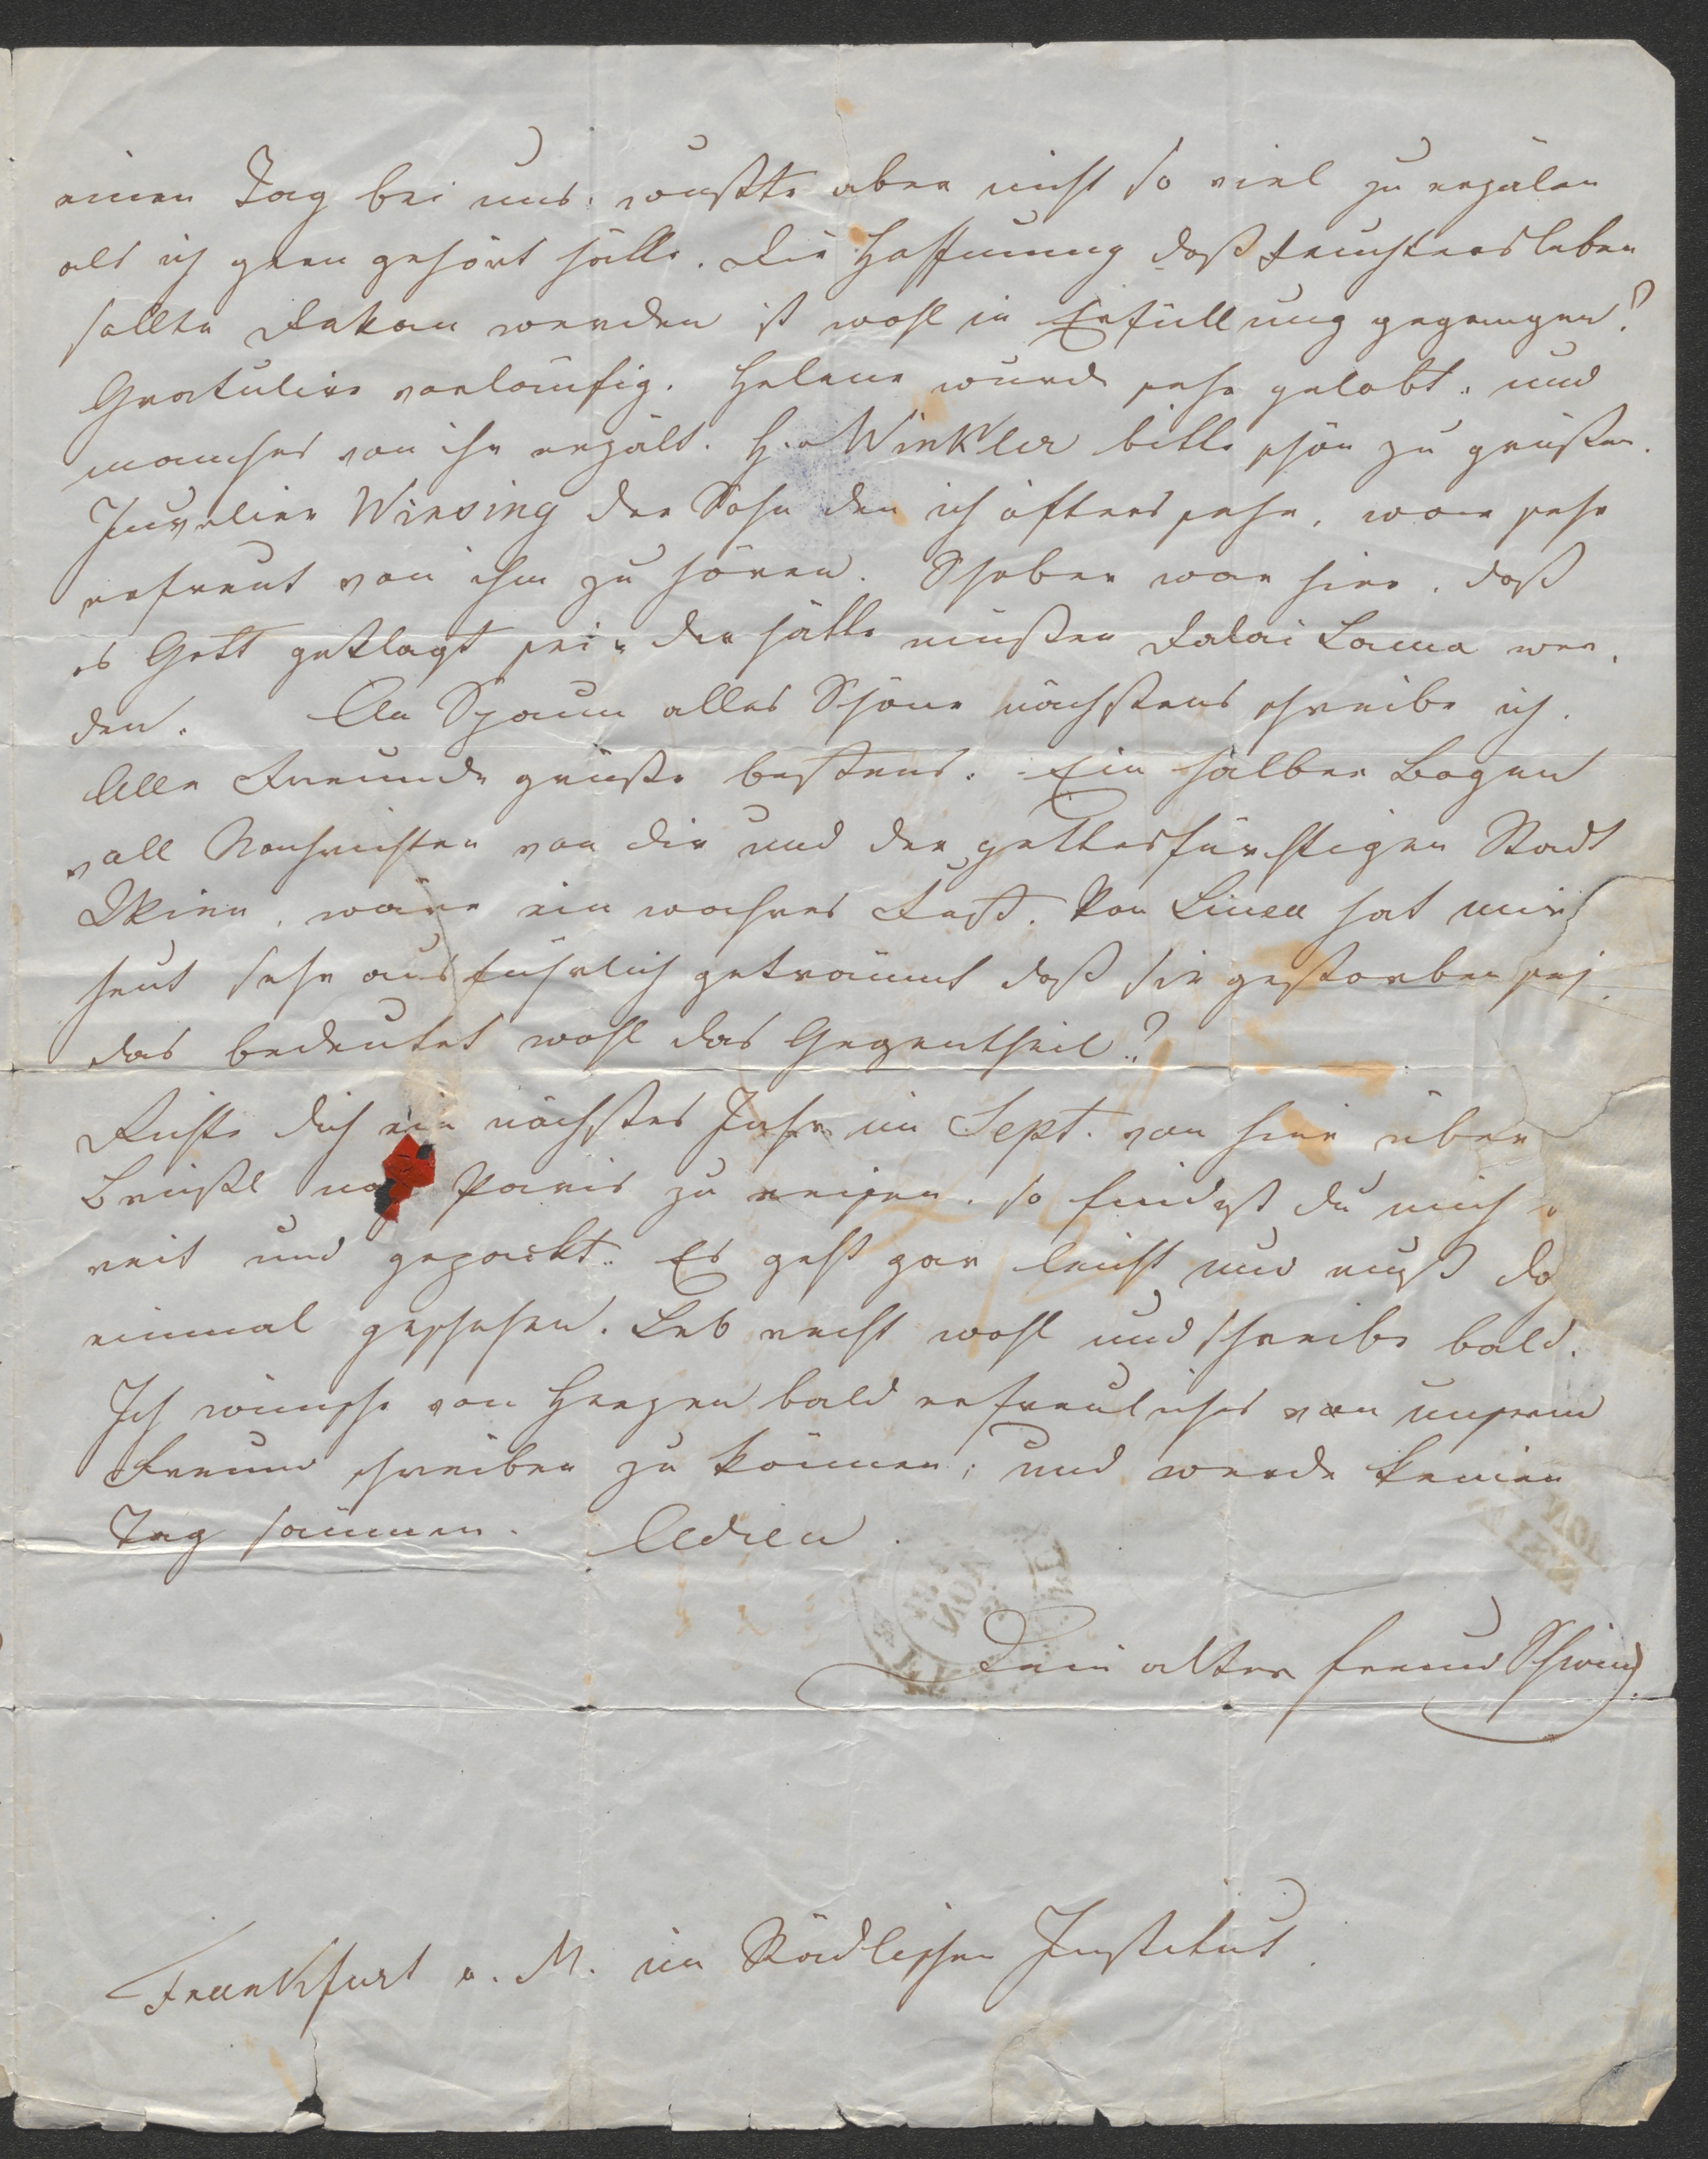 einen Tag bei uns, wußte aber nicht so viel zu erzälen
als ich gern gehört hätte. Die Hoffnung daß Feuchtersleben
sollte Dekan werden ist wohl in Erfüllung gegangen?
Gratulire vorläufig. Helene wurde sehr gelobt, und
manches von ihr erzält. H. Winkler bitte schön zu grüßen.
Juvelier Wirsing der Sohn den ich öfters sehe, war sehr
erfreut von ihm zu hören. Schober war hier, daß
es Gott geklagt sei, der hätte müßen Dalai Lama wer-
den. An Spaun alles Schöne nächstens schreibe ich.
Alle Freunde grüße bestens. Ein halber Bogen
voll Nachrichten von dir und der gottesfürchtigen Stadt
Wien, wäre ein wahres Fest. Von Linea hat mir
heut sehr ausführlich geträumt daß sie gestorben sej
das bedeutet wohl das Gegentheil?
Richte dich ein nächstes Jahr im Sept. von hier über
Brüßl nach Paris zu reisen, so findest du mich
reit und gepackt. Es geht gar leicht und muß do
einmal geschehen. Leb recht wohl und schreibe bald.
Ich wünsche von Herzen bald erfreuliches von unserm
Freund schreiben zu können, und werde keinen
Tag säumen. Adieu.
Dein alter Freund Schwind
Frankfurt a. M. im Städlischen Institut.